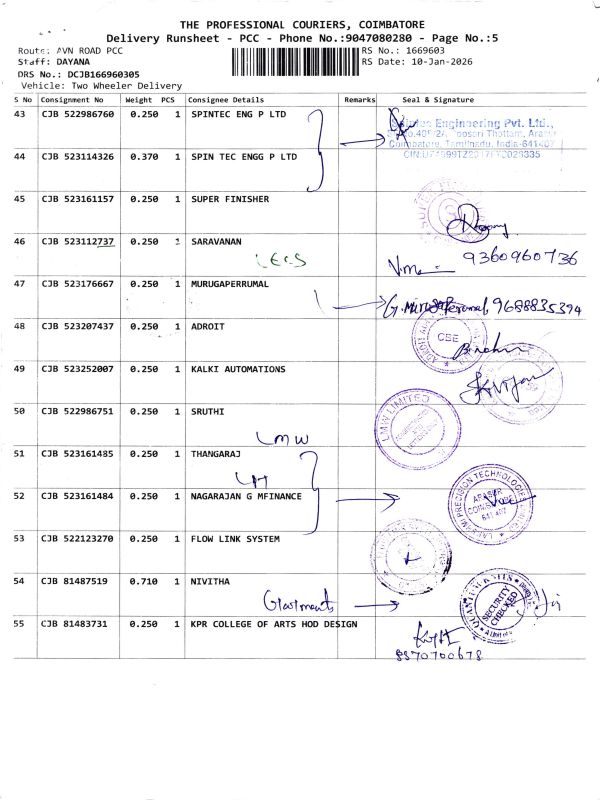 THE PROFESSIONAL COURIERS, COIMBATORE
Delivery Runsheet - PCC - Phone No.:9047080280 - Page No.:5
Route: AVN ROAD PCC
RS No.: 1669603
Staff: DAYANA
RS Date: 10-Jan-2026
DRS No.: DCJB166960305
Vehicle: Two Wheeler Delivery
S No Consignment No Weight PCS Consignee Details Remarks Seal & Signature
43 CJB 522986760 0.250 1 SPINTEC ENG P LTD
Engineering Pvt. Ltd.,
Coimbatore, Tamilnadu, India-641407
44 CJB 523114326 0.370 1 SPIN TEC ENGG P LTD
45 CJB 523161157 0.250 1 SUPER FINISHER
46 CJB 523112737 0.250 1 SARAVANAN
9360960736
47 CJB 523176667 0.250 1 MURUGAPERRUMAL
9688835394
48 CJB 523207437 0.250 1 ADROIT
CBE
49 CJB 523252007 0.250 1 KALKI AUTOMATIONS
50 CJB 522986751 0.250 1 SRUTHI
LMW
LMW LIMITED
51 CJB 523161485 0.250 1 THANGARAJ
52 CJB 523161484 0.250 1 NAGARAJAN G MFINANCE
PRECISION TECHNOLOGIES
53 CJB 522123270 0.250 1 FLOW LINK SYSTEM
54 CJB 81487519 0.710 1 NIVITHA
Garments
SECURITY
CHECKED
55 CJB 81483731 0.250 1 KPR COLLEGE OF ARTS HOD DESIGN
8870700678